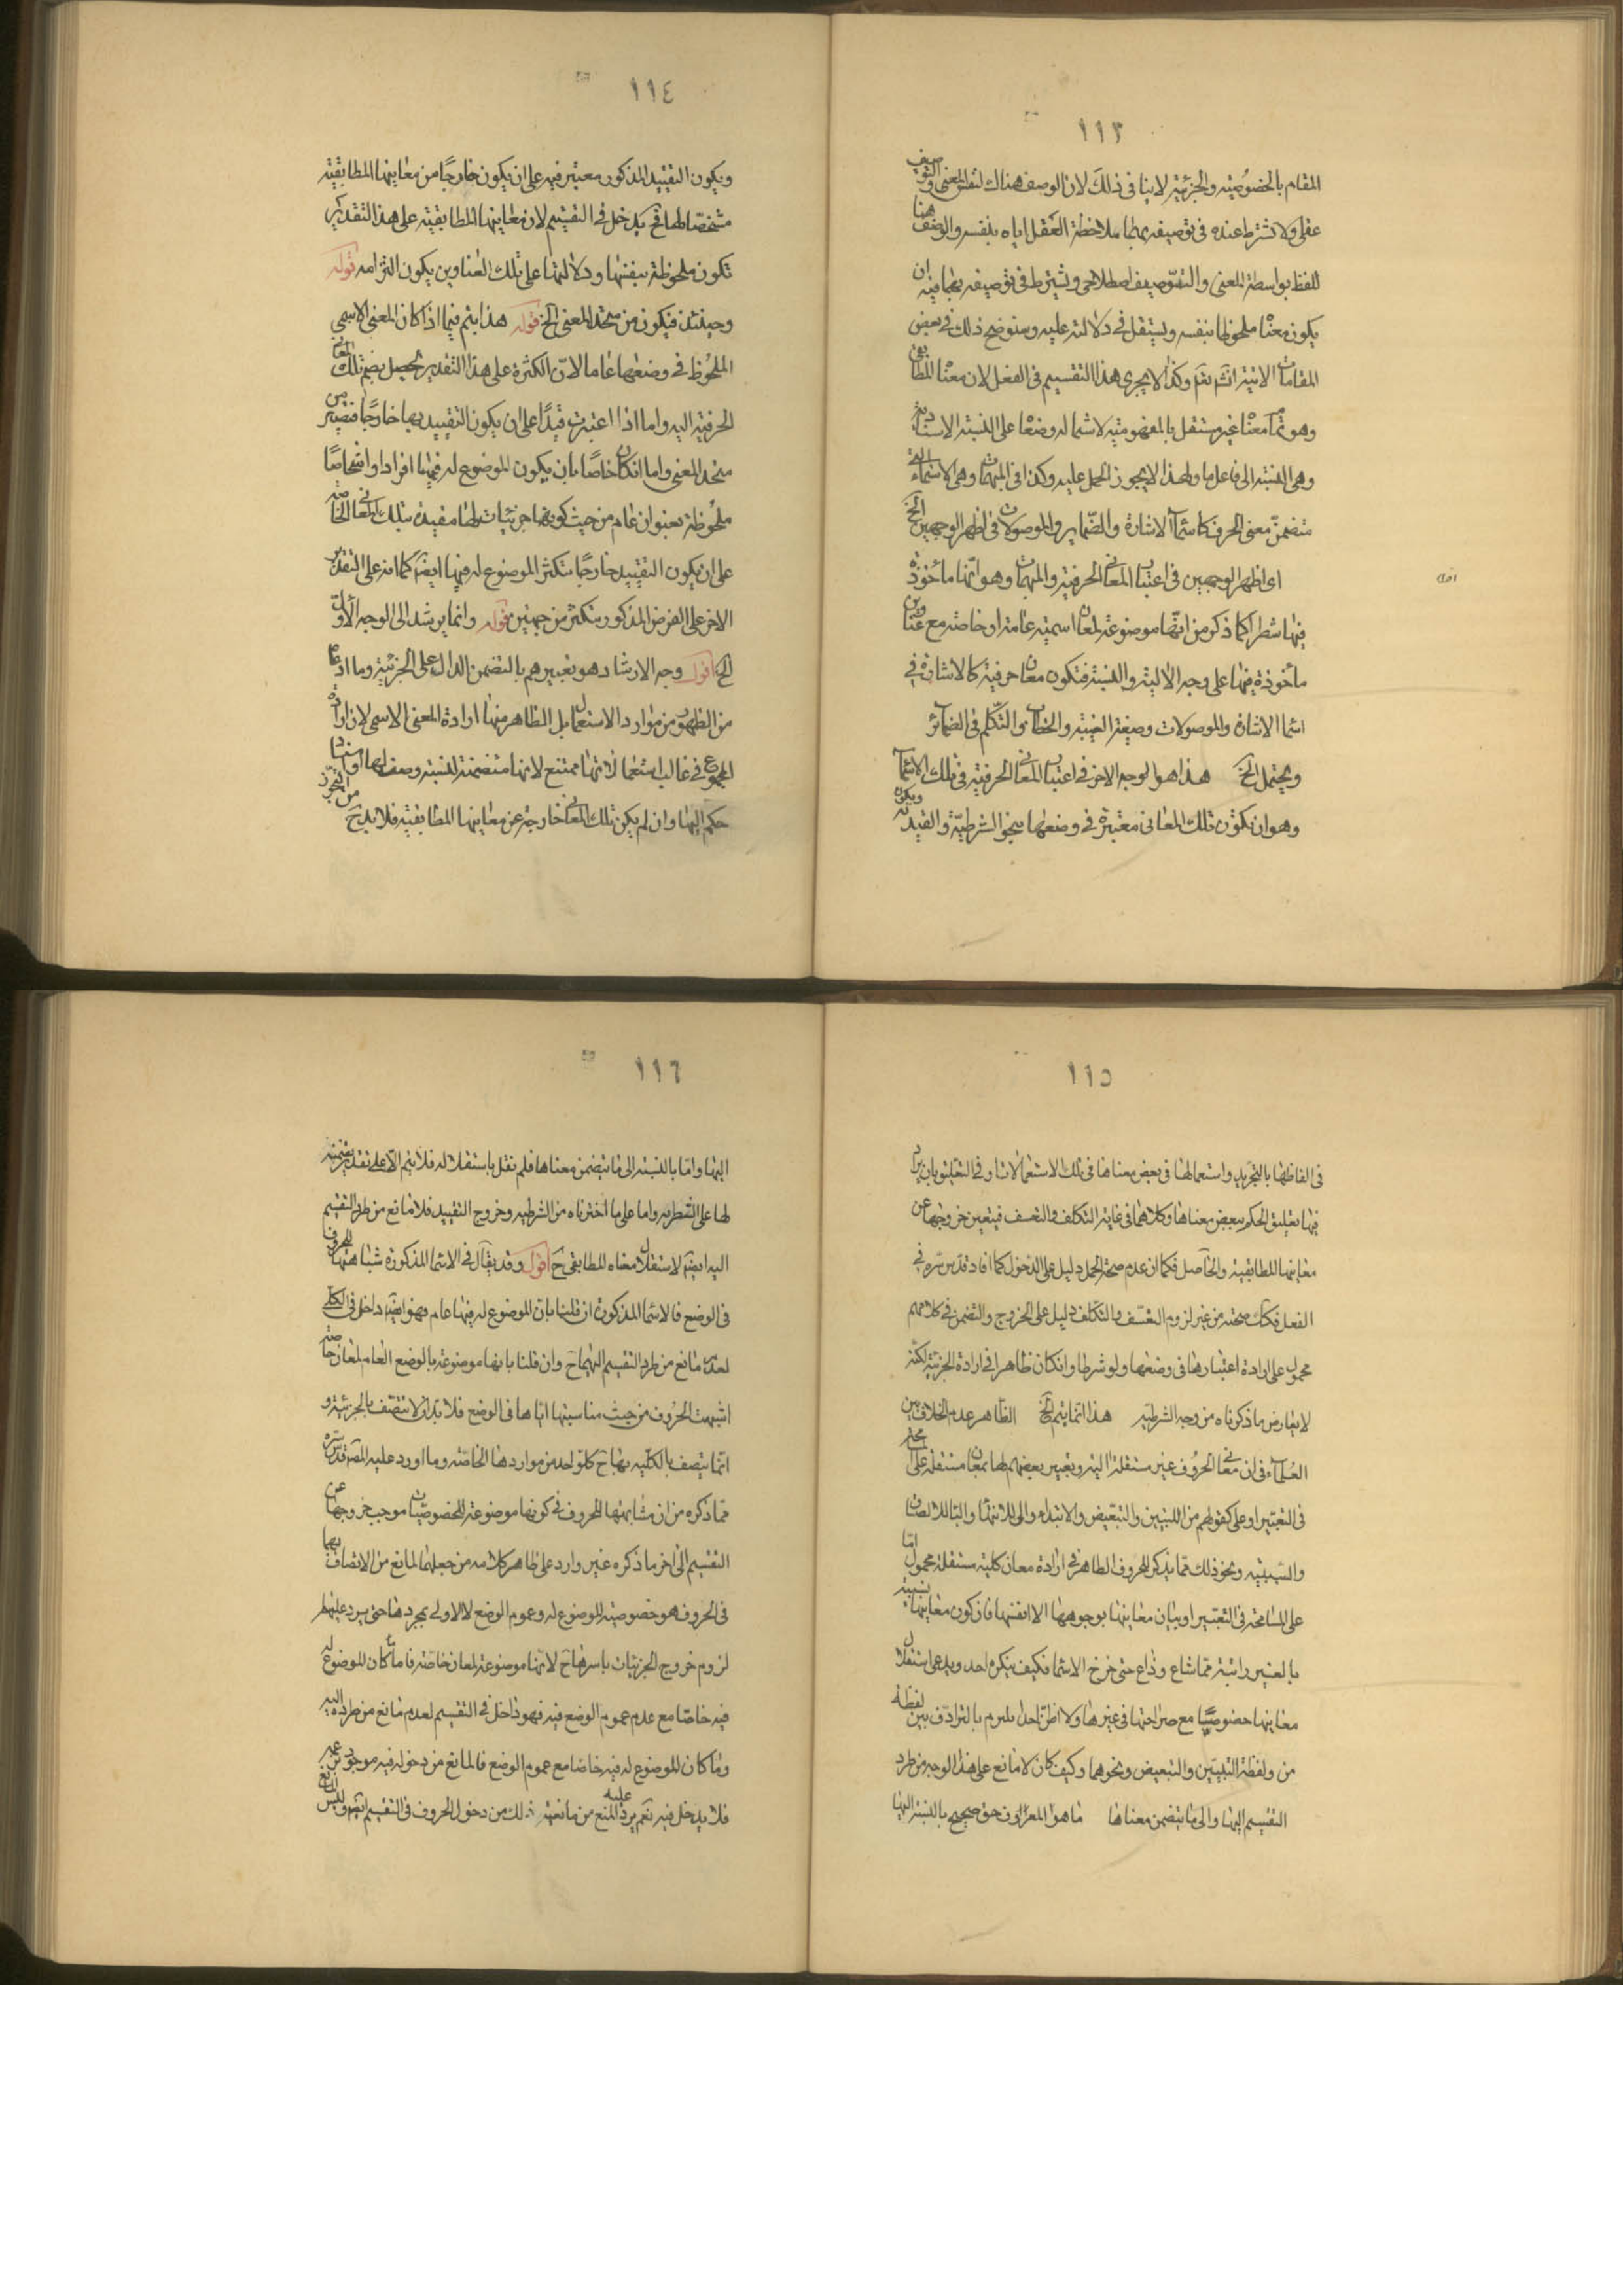 ١١٣
المقام بالخصوصية والجزئية لا ينافى ذلك لان الوصف هناك لنفس المعنى والتوصيف
عقلى ولا يشترط عنده فى توصيفه بهما ملاحظة العقل اياه بنفسه والوصف هنا
للفظ بواسطة المعنى والتوصيف اصطلاحى ويشترط فى توصيفه بهما فيه ان
يكون معناه ملحوظا بنفسه ويستقل فى دلالته عليه وسنوضح ذلك فى بعض
المقامات الاتية انشم نقم وكذا لا يجرى هذا التقسيم فى الفعل لان معناه المطابقى
وهو تمام معناه غير مستقل بالمفهومية لاشتماله وضعا على النسبة الاسنادية
وهى النسبة الى فاعل ما ولهذا لا يجوز الحمل عليه وكذا فى المبهمات وهى الاسماء التى
متضمن معنى الحرف كاسماء الاشارة والضماير والموصولات فى اظهر الوجهين الخ
اى اظهر الوجهين فى اعتبار المعانى الحرفية والمبهمات وهو انها مأخوذة
فيها شطرا كما ذكر من انها موضوعة لمعان اسمية عامة او خاصة مع عناوين
مأخوذة فيها على وجه الالية والنسبة فتكون معان حرفية كالاشارة فى
اسماء الاشارة والموصولات وصيغة الغيبة والخطاب والتكلم فى الضمائر
ويحتمل الخ هذا هو الوجه الاخر فى اعتبار المعانى الحرفية فى تلك الاسماء
وهو ان تكون تلك المعانى معتبرة فى وضعها بنحو الشرطية والقيدية ويكون
اقول
١١٤
ويكون التقييد المذكور معتبر فيه على ان يكون خارجا من معاينها المطابقية
مشخصا لها فح يدخل فى التقسيم لان معاينها المطابقية على هذا التقدير
تكون ملحوظة بنفسها ودلالتها على تلك العناوين يكون التزامه قوله
وحينئذ فيكون من متحد المعنى الخ قوله هذا يتم فيما اذا كان المعنى الاسمى
الملحوظ فى وضعها عاما لان الكثرة على هذا التقدير تحصل بضم تلك المعانى
الحرفية اليه واما اذا اعتبرت قيدا على ان يكون التقييد بها خارجا فتصير من
متحد المعنى واما انكان خاصا بان يكون الموضوع له فيها افرادا واشخاصا
ملحوظة بعنوان عام من حيث كونها جزئيات لها مقيدة بتلك المعانى الخاصة
على ان يكون التقييد خارجا يتكثر الموضوع له فيها ايضا كما انه على التقدير
الاخر على الفرض المذكور يتكثر من جهتين قوله وانما يرشد الى الوجه الاول
الخ اقول وجه الارشاد هو تعبيرهم بالتضمن الدال على الجزئية وما ادعاه
من الظهور من موارد الاستعمال بل الظاهر منها ارادة المعنى الاسمى لان ارادة
المجموع فى غالب استعمالاتها ممتنع لانها متضمنة لنسبة وصف لها او اسناد
حكم اليها وان لم يكن تلك المعانى خارجة عن معاينها المطابقية فلا بد ح من التجوز
١١٥
فى الفاظها بالتجريد واستعمالها فى بعض معناها فى تلك الاستعمالات او فى التعليق بان يراد
فيها تعليق الحكم ببعض معناها وكلاهما فى غاية التكلف والتعسف فيتعين خروجها عن
معاينها المطابقية والحاصل فكما ان عدم صحة الحمل دليل على الدخول كما افاد قدس سره فى
الفعل فكك صحته من غير لزوم التعسف والتكلف دليل على الخروج والتضمن فى كلامهم
محمول على ارادة اعتبارها فى وضعها ولو شرطا وانكان ظاهرا فى ارادة الجزئية لكنه
لا يعارض ما ذكرناه من وجه الشرطية هذا انما يتم الخ الظاهر عدم الخلاف بين
العلماء فى ان معانى الحروف غير مستقلة البتة وتعبير بعضهم لها بمعان مستقلة على
فى التعبير او على كقولهم من للتبيين والتبعيض والابتداء والى للانتهاء والباء للالصاق
والسببية ونحو ذلك مما يذكر للحروف الظاهر فى ارادة معان كلية مستقلة محمول اما
على المسامحة فى التعبير او بيان معاينها بوجوهها لا انفسها فان كون معاينها نسبية
بالغير رابتة مما شاع وذاع حتى خرج الاسماء فكيف ينكره احد ويدعى استقلال
معاينها خصوصا مع صراحتها فى غيرها ولا اظن احدا يلتزم بالترادف بين لفظة
من ولفظة التبيين والتبعيض ونحوهما وكيف كان لا مانع على هذا الوجه من طرد
التقسيم اليها والى ما يتضمن معناها ما هو المعروف حق صحيح بالنسبة اليها
١١٦
اليها واما بالنسبة الى ما يتضمن معناها فلم نقل باستقلاله فلا يتم الا على تقدير تضمنه
لها على الشطرية واما على ما اخترناه من الشرطية وخروج التقييد فلا مانع من طرد التقسيم
اليه ايضم لاستقلال معناه المطابقى ح اقول وقد يقال فى الاسماء المذكورة شباهتها للحروف
فى الوضع فالاسماء المذكورة ان قلنا بان الموضوع له فيها عام فهو ايضم داخل فى الكلى
لعدم مانع من طرد التقسيم اليها ح وان قلنا بانها موضوعة بالوضع العام لمعان خاصة
اشبهت الحروف من حيث مناسبتها اياها فى الوضع فلا بد ان لا تتصف بالجزئية و
انما يتصف بالكلية بها ح كل واحد من مواردها الخاصة وما اورد عليه المصم قدس سره
مما ذكره من ان مشابهتها للحروف فى كونها موضوعة للخصوصيات موجب خروجها عن
التقسيم الى اخر ما ذكره غير وارد على ظاهر كلامه من جعلها المانع من الاتصاف بهما
فى الحروف هو خصوصية الموضوع له وعموم الوضع لا الاولى بمجردها حتى يرد عليها
لزوم خروج الجزئيات باسرها ح لانها موضوعة لمعان خاصة فاما ما كان الموضوع له
فيه خاصا مع عدم عموم الوضع فيه فهو داخل فى التقسيم لعدم مانع من طرده اليه
وما كان الموضوع له فيه خاصا مع عموم الوضع فالمانع من دخوله فيه موجود عنه
فلا يدخل فيه نعم يرد عليه المنع من مانعية ذلك من دخول الحروف فى التقسيم ايضم وليس المانع